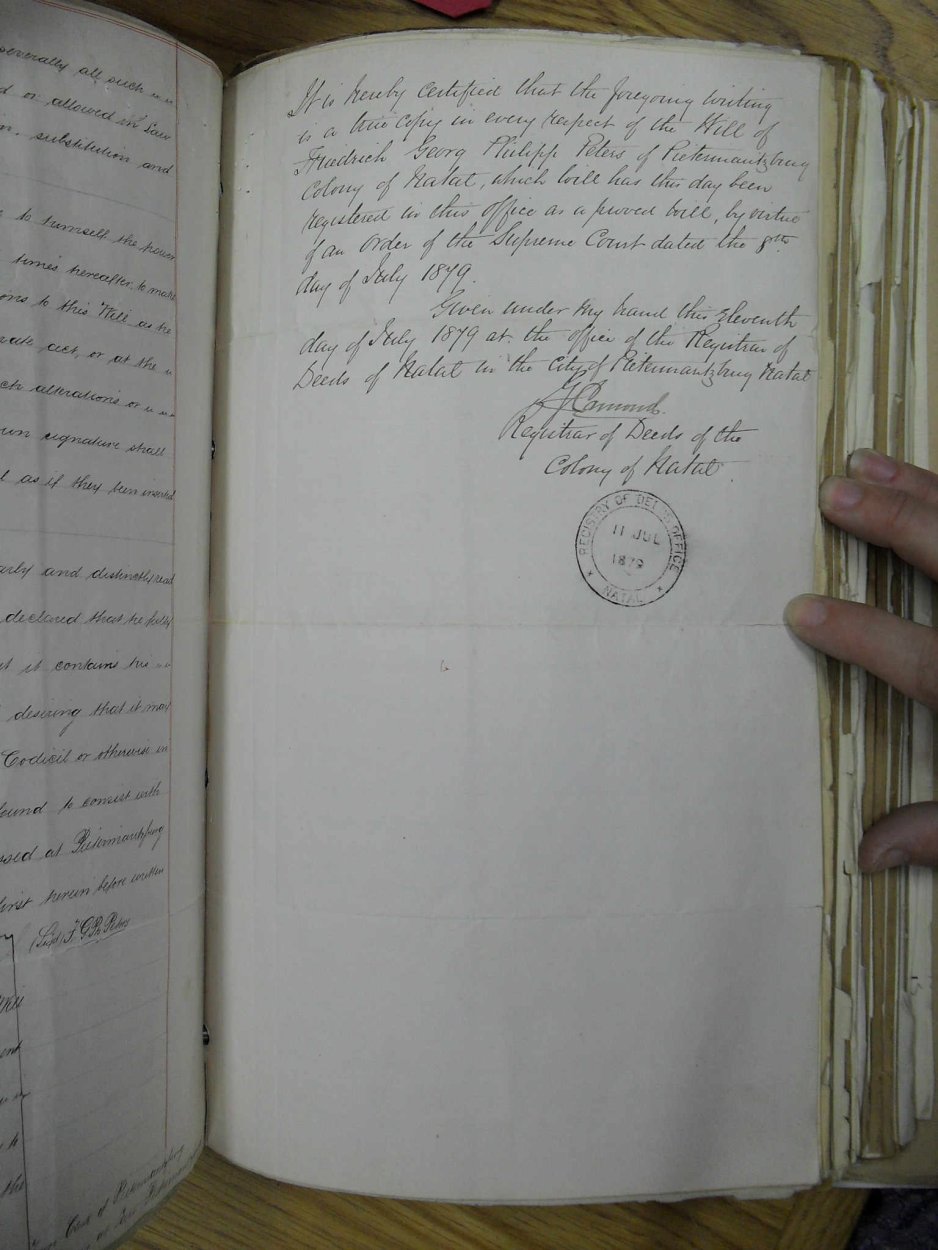 severally all such
d or allowed in Law
n, substitution and
to himself the power
times hereafter, to make
ons to this Will as he
vate act, or at the
ch alterations or
own signature shall
l as if they been inserted
arly and distinctly read
declared that he fully
t it contains his
desiring that it may
Codicil or otherwise in
found to consist with
ssed at Pietermaritzburg
first herein before written
(Sigd) F. G. Ph. Peters
Will
ent
to
the
of Pietermaritzburg
It is hereby certified that the foregoing writing
is a true copy in every respect of the Will of
Friedrich Georg Philipp Peters of Pietermaritzburg
Colony of Natal, which will has this day been
registered in this office as a proved will, by virtue
of an order of the Supreme Court dated the 8th
day of July 1879.
Given under my hand this Eleventh
day of July 1879 at the office of the Registrar of
Deeds of Natal in the City of Pietermaritzburg Natal
Registrar of Deeds of the
Colony of Natal.
REGISTRY OF DEEDS OFFICE
11 JUL
1879
* NATAL *